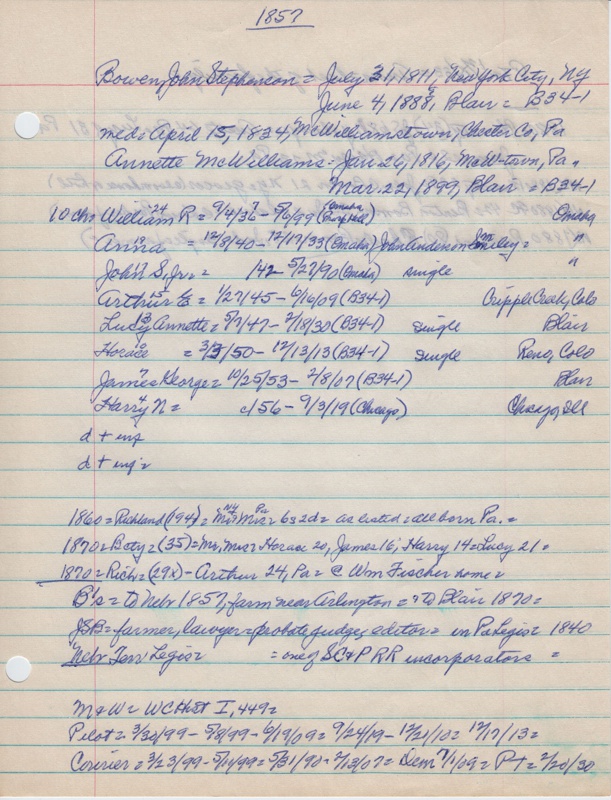 1857
Bowen, John Stephenson = July 31, 1811, New York City, NY
June 4, 1888, Blair = B34-1
med: April 15, 1834, McWilliamstown, Chester Co, Pa
Annette McWilliams = Jan. 26, 1816, McW-town, Pa.
Mar. 22, 1899, Blair = B34-1
10 ch = William R = 9/4/36 - 5/6/99 (Omaha Omaha
Anna 19 = 12/8/40 - 12/17/33 (Omaha) John Anderson = "
John S, Jr. = /42 - 5/27/90 (Omaha) single "
Arthur = 1/27/45 - 6/16/09 (B34-1) Cripple Creek, Colo
Lucy Annette = 5/7/47 - 2/18/30 (B34-1) single Blair
Horace 10 = 3/3/50 - 12/13/13 (B34-1) single Reno, Colo
James George 7 = 10/25/53 - 2/8/07 (B34-1) Blair
Harry N 4 = c/56 - 9/3/19 (Chicago) Chicago, Ill
d + inf
d + inf =
1860 = Richland (194) = Mr NY Mrs Pa = 6s 2d = as listed = all born Pa. =
1870 = Bcty = (35) = Mr, Mrs = Horace 20, James 16, Harry 14 = Lucy 21 =
1870 = Rich = (29x) - Arthur 24, Pa = @ Wm Fischer home =
B's = to Nebr 1857, farm near Arlington = to Blair 1870 =
JSB = farmer, lawyer = probate judge, editor = in Pa Legis 1840
Nebr Terr Legis = = one of SC&P RR incorporators =
M & W = WC Hist I, 449 =
Pilot = 3/30/99 - 5/8/99 - 6/19/09 = 9/24/19 - 12/21/10 = 12/17/13 =
Courier = 3/23/99 - 5/11/99 = 5/31/90 - 2/13/07 = Dem 7/1/09 = PT = 2/20/30